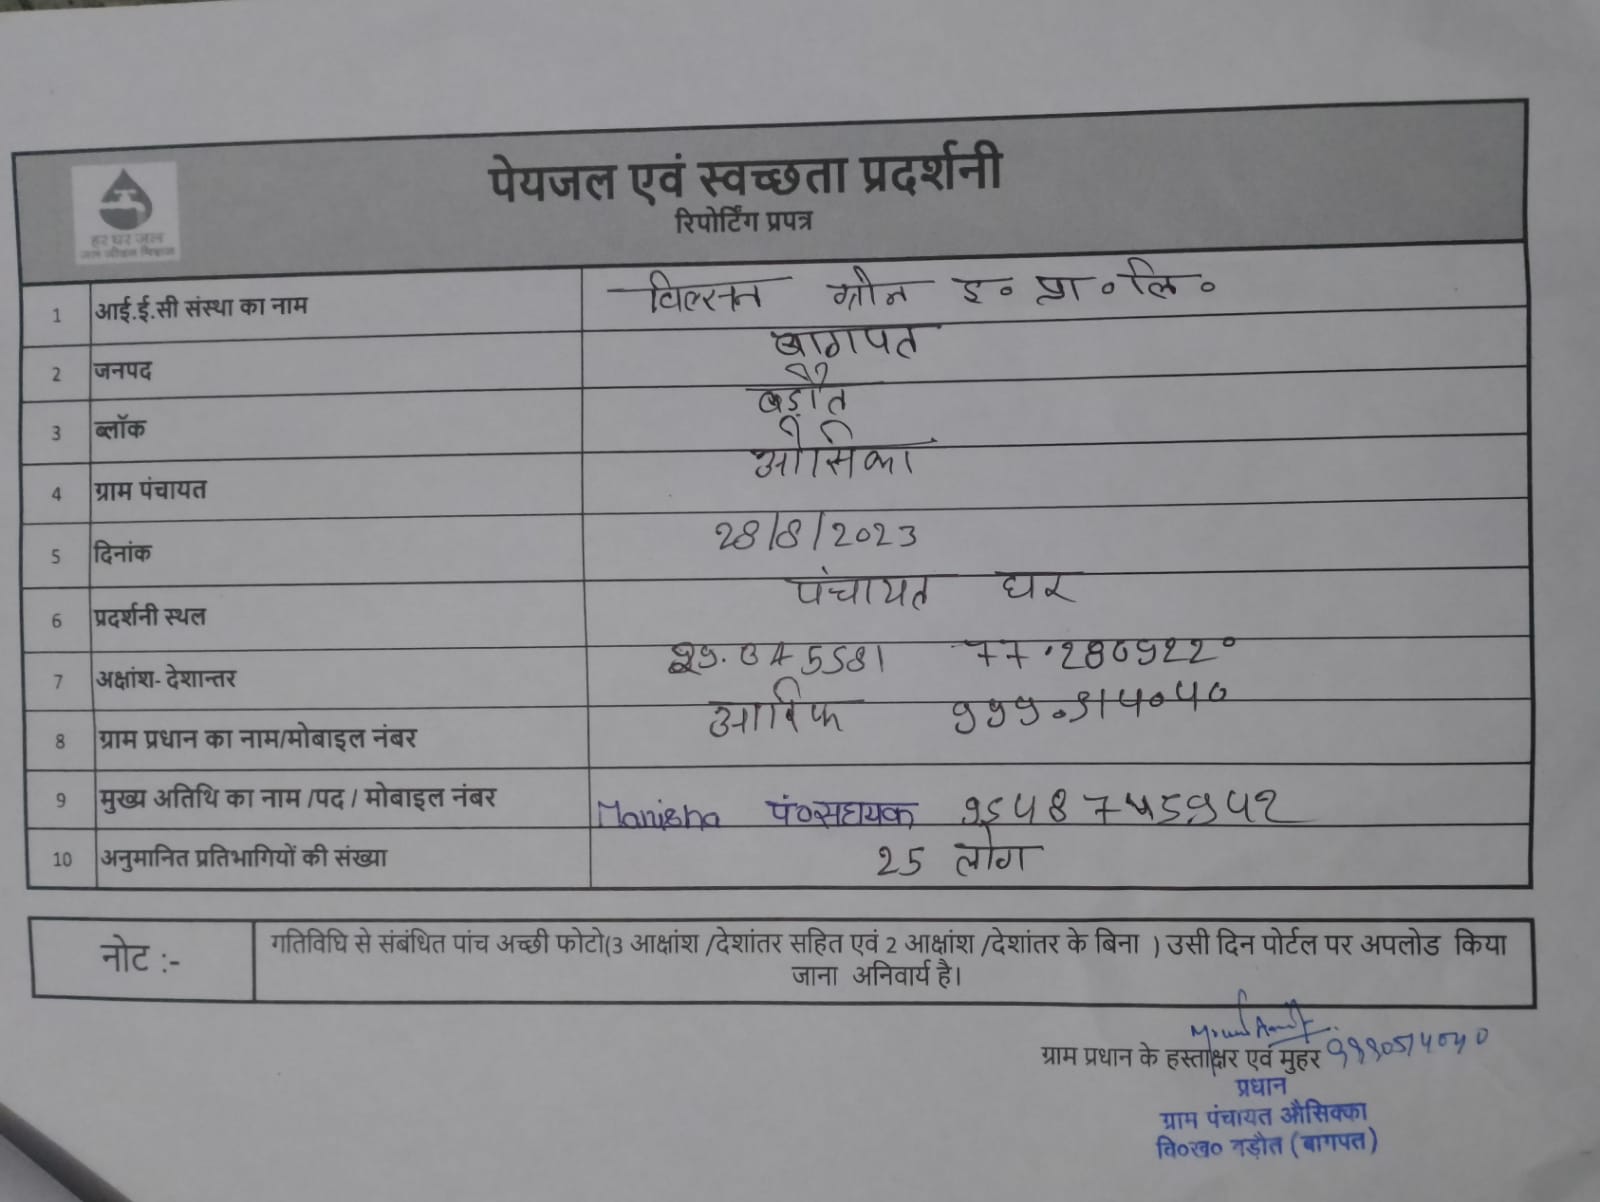 हर घर जल
जल जीवन मिशन
पेयजल एवं स्वच्छता प्रदर्शनी
रिपोर्टिंग प्रपत्र
1 आई.ई.सी संस्था का नाम विल्सन ग्रीन इ० प्रा०लि०
2 जनपद बागपत
3 ब्लॉक बड़ौत
4 ग्राम पंचायत औसिका
5 दिनांक 28/8/2023
6 प्रदर्शनी स्थल पंचायत घर
7 अक्षांश- देशान्तर
8 ग्राम प्रधान का नाम/मोबाइल नंबर आरिफ
9 मुख्य अतिथि का नाम /पद / मोबाइल नंबर Manisha पं०सहायक
10 अनुमानित प्रतिभागियों की संख्या 25 लोग
नोट :- गतिविधि से संबंधित पांच अच्छी फोटो(3 आक्षांश /देशांतर सहित एवं 2 आक्षांश /देशांतर के बिना ) उसी दिन पोर्टल पर अपलोड किया
जाना अनिवार्य है।
ग्राम प्रधान के हस्ताक्षर एवं मुहर 9990514040
प्रधान
ग्राम पंचायत औसिक्का
वि०ख० बड़ौत (बागपत)